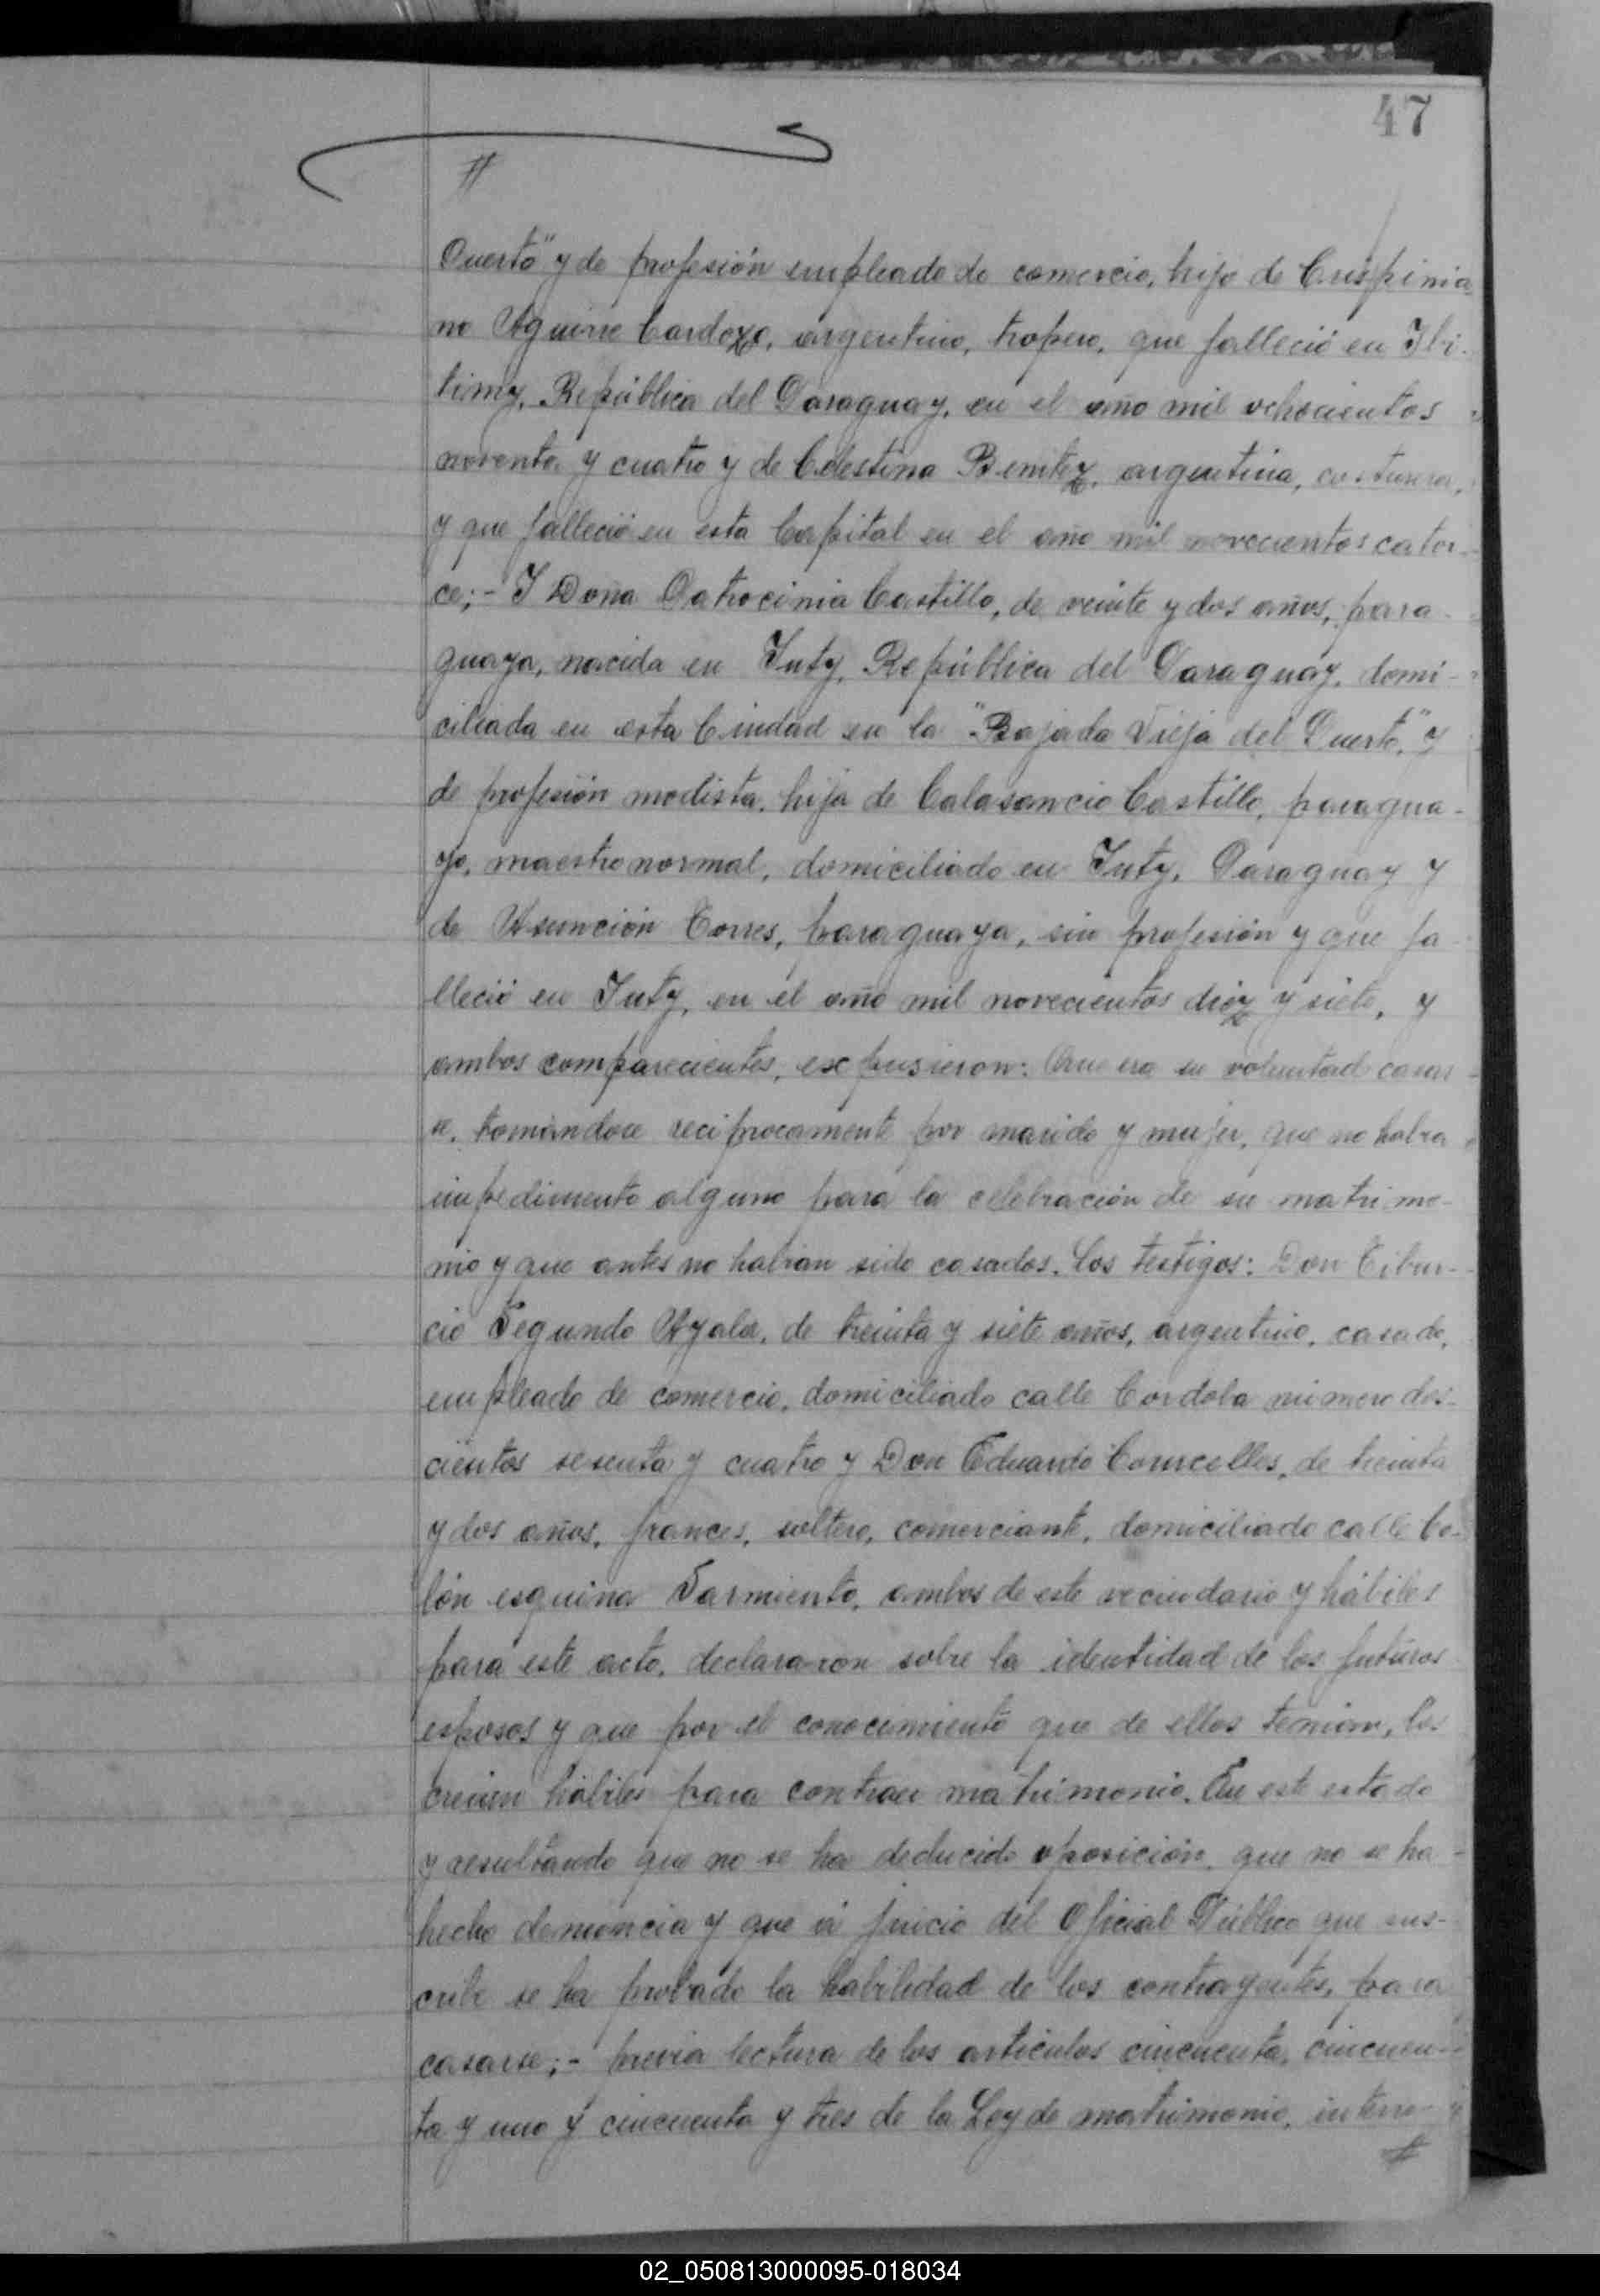 47
#
Puerto" y de profesión empleado de comercio, hijo de Crispinia-
no Aguirre Cardozo, argentino, tropero, que falleció en Ibi-
timy, República del Paraguay, en el año mil ochocientos
noventa y cuatro y de Celestina Benitez, argentina, costurera,
y que falleció en esta Capital en el año mil novecientos cator-
ce;- Y Doña Patrocinia Castillo, de veinte y dos años, para-
guaya, nacida en Yuty, República del Paraguay, domi-
ciliada en esta Ciudad en la "Bajada Vieja del Puerto," y
de profesión modista, hija de Calasancio Castillo, paragua-
yo, maestro normal, domiciliado en Yuty, Paraguay y
de Asunción Torres, paraguaya, sin profesión y que fa-
lleció en Yuty, en el año mil novecientos diez y siete, y
ambos comparecientes, expusieron: Que era su voluntad casar-
se, tomándose reciprocamente por marido y mujer, que no habia
impedimento alguno para la celebración de su matrimo-
nio y que antes no habian sido casados. Los testigos: Don Tibur-
cio Segundo Ayala, de treinta y siete años, argentino, casado,
empleado de comercio, domiciliado calle Córdoba número dos-
cientos sesenta y cuatro y Don Eduardo Courcelles, de treinta
y dos años, frances, soltero, comerciante, domiciliado calle Co-
lón esquina Sarmiento, ambos de este vecindario y hábiles
para este acto, declararon sobre la identidad de los futuros
esposos y que por el conocimiento que de ellos tenian, los
creian hábiles para contraer matrimonio. En este estado
y resultando que no se ha deducido oposición, que no se ha
hecho denuncia y que á juicio del Oficial Público que sus-
cribe se ha probado la habilidad de los contrayentes, para
casarse;- previa lectura de los artículos cincuenta, cincuen-
ta y uno y cincuenta y tres de la Ley de matrimonio, interro-
#
02_050813000095-018034